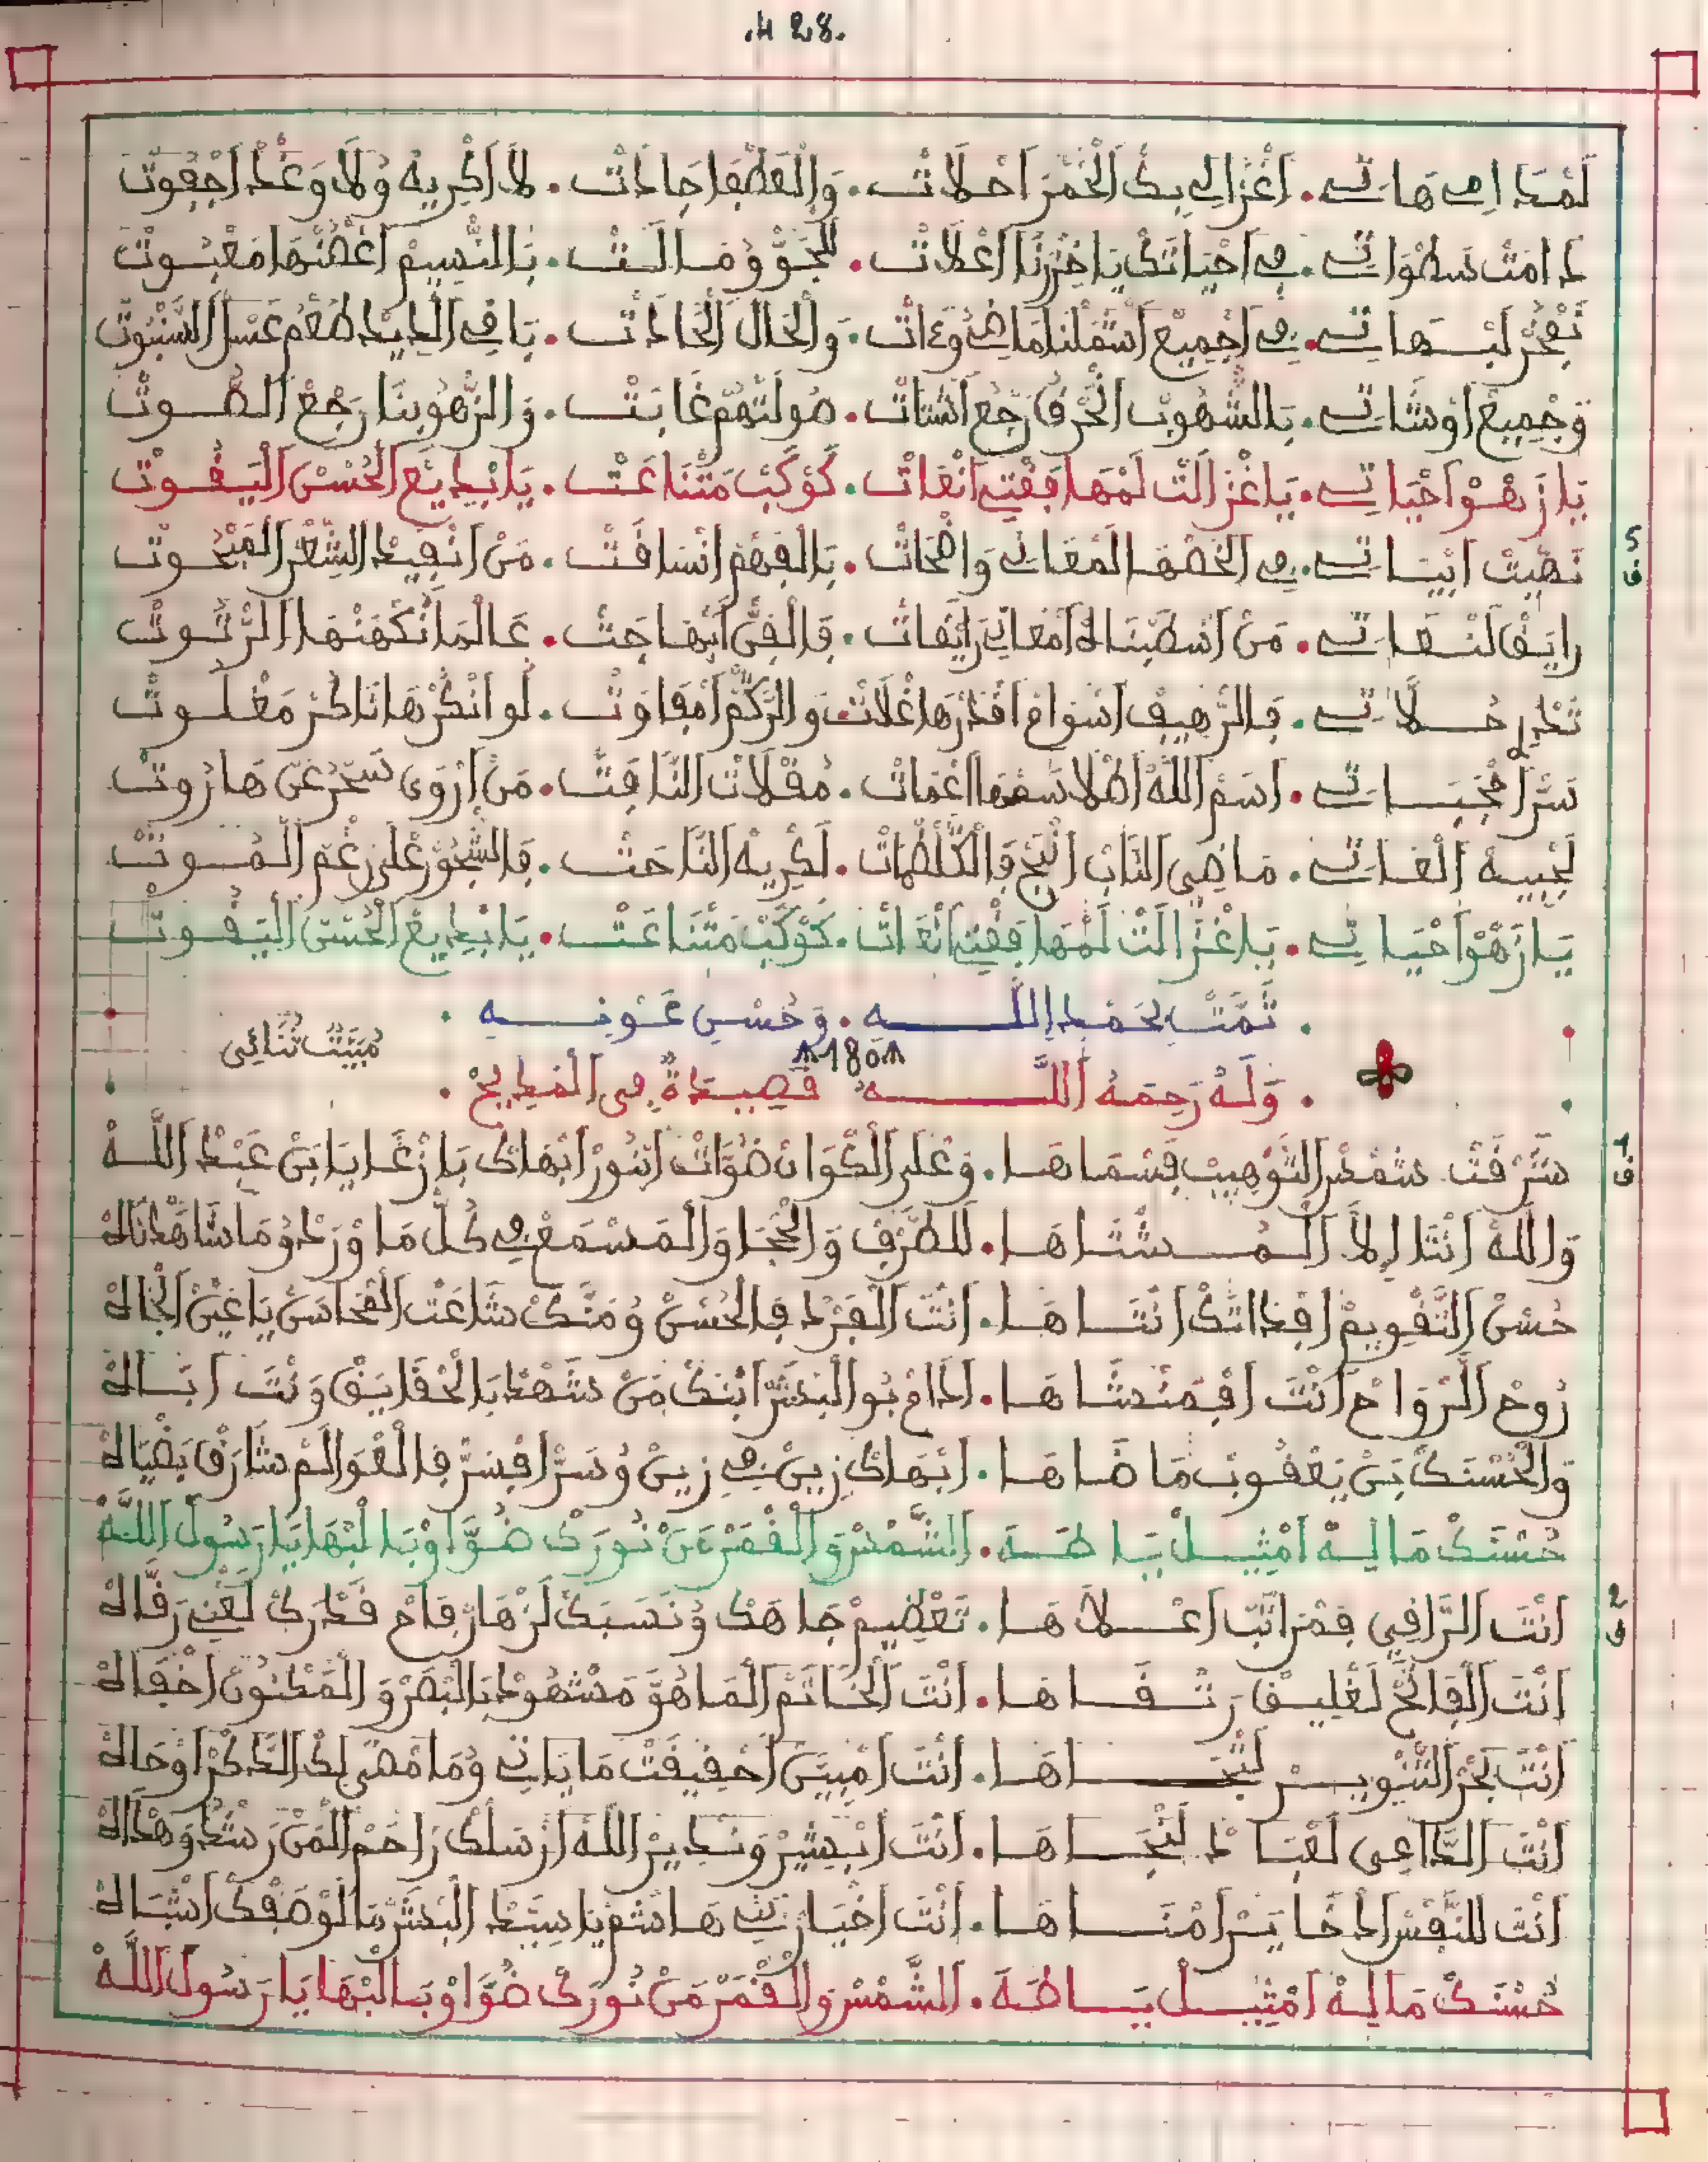 .428.
لمدامي هاتي . اغزالي بك الخمر احلات . والعطفا جادت . لا اكريه ولا وغد اجفوت
دامت سطواتي . في احياتك يا خزرنا اعلات . للجو ومالت . بالنسيم اغصنها مغبوت
تفجر لبهاتي . في اجميع اشملنا ماضوءات . والحال الخادت . يا في الديد طعم عسل السنوت
وجميع اوشاتي . بالشهوب الحرق رجع اشتات . صولتهم غابت . والزهو بنا رجع الصوت
يا زهو احياتي . يا غزالت لمها فقتي انعات . كوكب متناعت . يا بديع الحسن اليفوت
5 ف
نصيت ابياتي . في الخصها المعاني واضحات . بالفهم انسافت . من انفيد الشعر المنحوت
رايق لنعاتي . من اشطبنا له امعاني رايقات . فالفن ابهاجت . عالما نكهتها الرتوت
تحرير حلاتي . فالرهيف اسوام اقدرها غلات والركم امفاوت . لو انكرها ناكر مغلوت
سر احجباتي . اسم الله اطلاسمها اعمات . مقلات النافت . من اروى سحر عن هاروت
لجبيه الغاتي . ماضي الناب انبج فالكلطمات . لكريه الناحت . فالشجور على رغم الموت
يا زهو احياتي . يا غزالت لمها فقتي انعات . كوكب متناعت . يا بديع الحسن اليفوت
. تمت بحمد الله . وحسن عونه .
مبيت ثنائي
180
. وله رحمه الله قصيدة في المديح .
1 ف
شرفت شمس التوهيب فسماها . وعلى الكوان ضوات انور ابهاك يا زغا يا بن عبد الله
والله انتا إلا المشتاها . للطرف والحجا والمسمع في كل ما ورد وما شاهدناه
حسن التقويم افذاتك انتاها . انت الفرد فالحسن ومنك شاعت المحاسن يا غين الجاه
روح الرواح انت افمنشاها . ادام بو البشر ابنك من شهد بالحقايق ونت اباه
والحسنك بن يعقوب ما ضاها . ابهاك زين في زين وسر افسر فالعوالم شارق بضياه
حسنك ماليه امثيل يا طه . الشمس والقمر من نورك ضواو بالبها يا رسول الله
2 ف
انت الراقي فمراتب اعلاها . تعظيم جاهك ونسبك لزهار فاح قدرك لغني رقاه
انت الفاتح لغليق رتقاها . انت الخاتم الما هو مشهود بالبصر والمكنون اخفاه
انت بحر التنوير لتجاها . انت امبين احقيقت ما ياتي وما مضى لك الذكر اوحاه
انت الداعي لعباد لنجاها . انت ابشير ونذير الله ارسلك راحم المن رشد وهداه
انت للنفس الدخاير امناها . انت اخيار بني هاشم يا سيد البشر ما الوصفك اشباه
حسنك ماليه امثيل يا طه . الشمس والقمر من نورك ضواو بالبها يا رسول الله